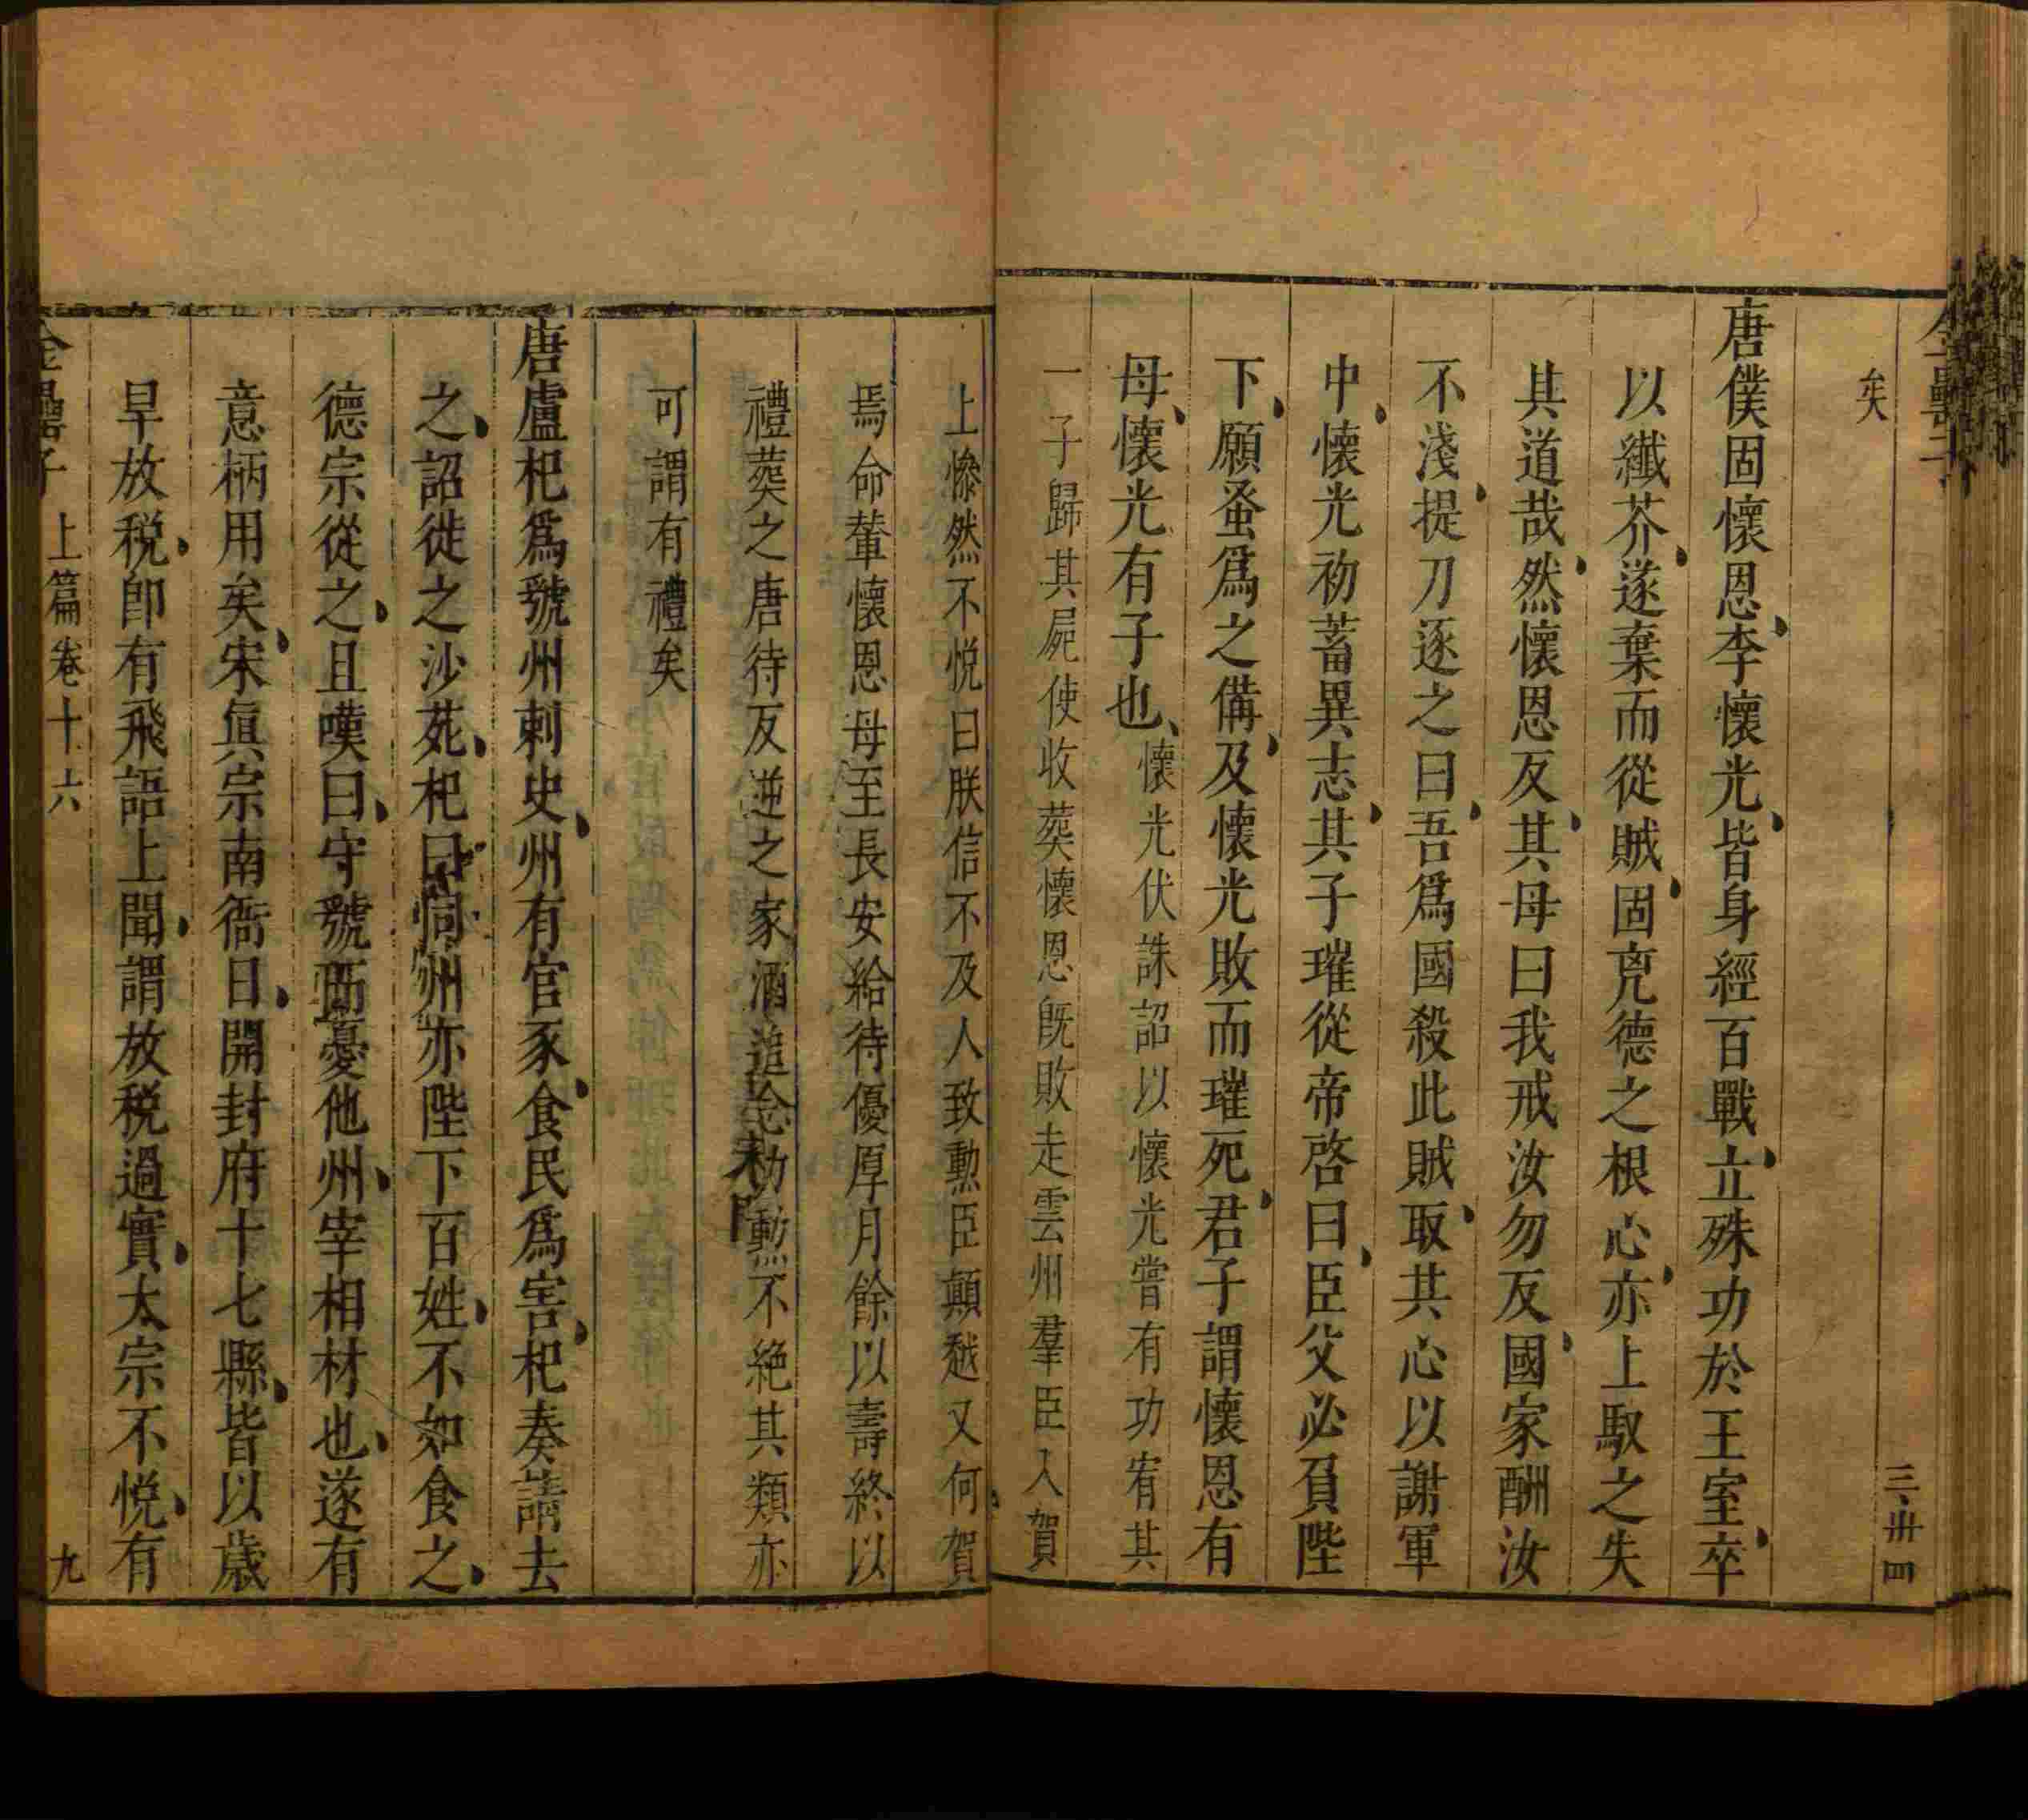 三卌四
矣
唐僕固懷恩李懷光皆身經百戰立殊功於王室卒
以纖芥遂棄而從賊固凶德之根心亦上馭之失
其道哉然懷恩反其母曰我戒汝勿反國家酬汝
不淺提刀逐之曰吾爲國殺此賊取其心以謝軍
中懷光初蓄異志其子璀從帝啓曰臣父必負陛
下願蚤爲之備及懷光敗而璀死君子謂懷恩有
母懷光有子也懷光伏誅詔以懷光嘗有功宥其
一子歸其屍使收葬懷恩既敗走雲州羣臣入賀
上慘然不悅曰朕信不及人致勳臣顚越又何賀
焉命輦懷恩母至長安給待優厚月餘以壽終以
禮葬之唐待反逆之家酒追念勳不絕其類亦
可謂有禮矣
唐盧杞爲虢州刺史州有官豕食民爲害杞奏請去
之詔徙之沙苑杞曰同州亦陛下百姓不如食之
德宗從之且嘆曰守虢而憂他州宰相材也遂有
意柄用矣宋眞宗南衙日開封府十七縣皆以歲
旱放税卽有飛語上聞謂放税過實太宗不悅有
金罍子 上篇卷十六 九